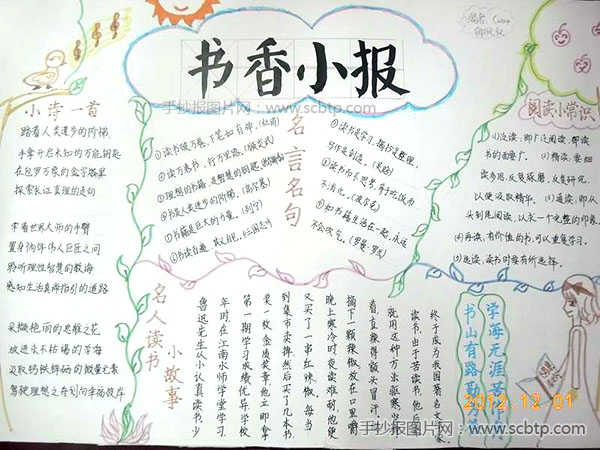 书香小报
手抄报图片网:www.scbtp.com
编者:
小诗一首
踏着人类进步的阶梯
手拿开启未知的万能钥匙
在包罗万象的金字塔里
探索长江真理的走向
牵着世界大师的手臂
置身偶像伟人巨匠之间
聆听理性智慧的教诲
感知生活真谛指引的道路
采撷艳丽的思维之花
放进永不枯竭的苦海
汲取钙铁锌硒的微量元素
驾驶理想之舟划向幸福彼岸
名言名句
①读书破万卷,下笔如有神。(杜甫)
②读万卷书,行万里路。
③理想的书籍,是智慧的钥匙。
④书是人类进步的阶梯。(高尔基)
⑤书籍是巨大的力量。(列宁)
⑥书读百遍,其义自见。(三国志)
①读书是学习,摘抄是整理,
写作是创造。(吴晗)
②读书而不思考,等于吃饭而
不消化。(波尔克)
③和书籍生活在一起,永远
不会叹气。(罗曼·罗兰)
阅读小常识
(1)泛读,即广泛阅读,指读
书的面要广。(2)精读,要细
读多思,反复琢磨,反复研究,
以便汲取精华。(3)通读,即从
头到尾阅读,以求一个完整的印象。
(4)再读,有价值的书,可以重复学习。
(5)选读,读书时要有所选择。
名人读书
小故事
鲁迅先生从小认真读书。少
年时,在江南水师学堂学习,
第一学期成绩优异,学校
奖一枚金质奖章。他立即拿
到集市卖掉,然后买了几本书,
又买了一串红辣椒。每当
晚上寒冷时,夜读难耐,他便
摘下一颗辣椒,放在口里嚼
着,直辣得额头冒汗。
就用这种方法驱寒坚持
读书。由于苦读书,他后来
终于成为我国著名文学家
书山有路勤为径
学海无涯苦作舟
2012.12.01
手抄报图片网:www.scbtp.com